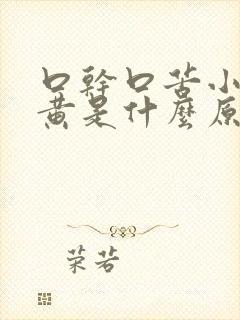 口幹口苦小
黄是什麼原
荣若